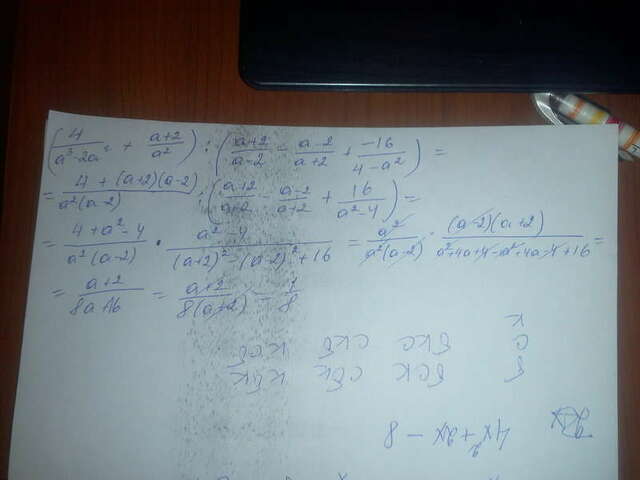 (4/(a³-2a²) + (a+2)/a²) : ((a+2)/(a-2) - (a-2)/(a+2) + -16/(4-a²)) =
= (4+(a+2)(a-2))/(a²(a-2)) : ((a+2)/(a-2) - (a-2)/(a+2) + 16/(a²-4)) =
= (4+a²-4)/(a²(a-2)) · (a²-4)/((a+2)²-(a-2)²+16) = a²/(a²(a-2)) · ((a-2)(a+2))/(a²+4a+4-a²+4a-4+16) =
= (a+2)/(8a+16) = (a+2)/(8(a+2)) = 1/8
б бск сбк кбк
с бкс скб ксб
к
4x²+2x-8